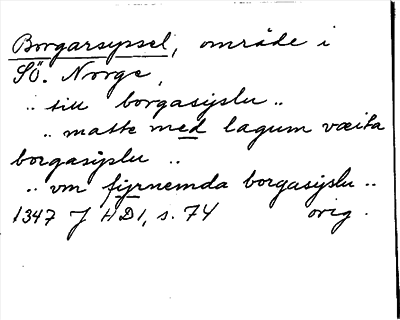 Borgarsyssel, område i
SÖ. Norge,
.. till borgasyslu ..
.. matte med lagum væita
borgasyslu ..
.. vm fyrnemda borgasyslu ..
1347 J HD1, s. 74 orig.